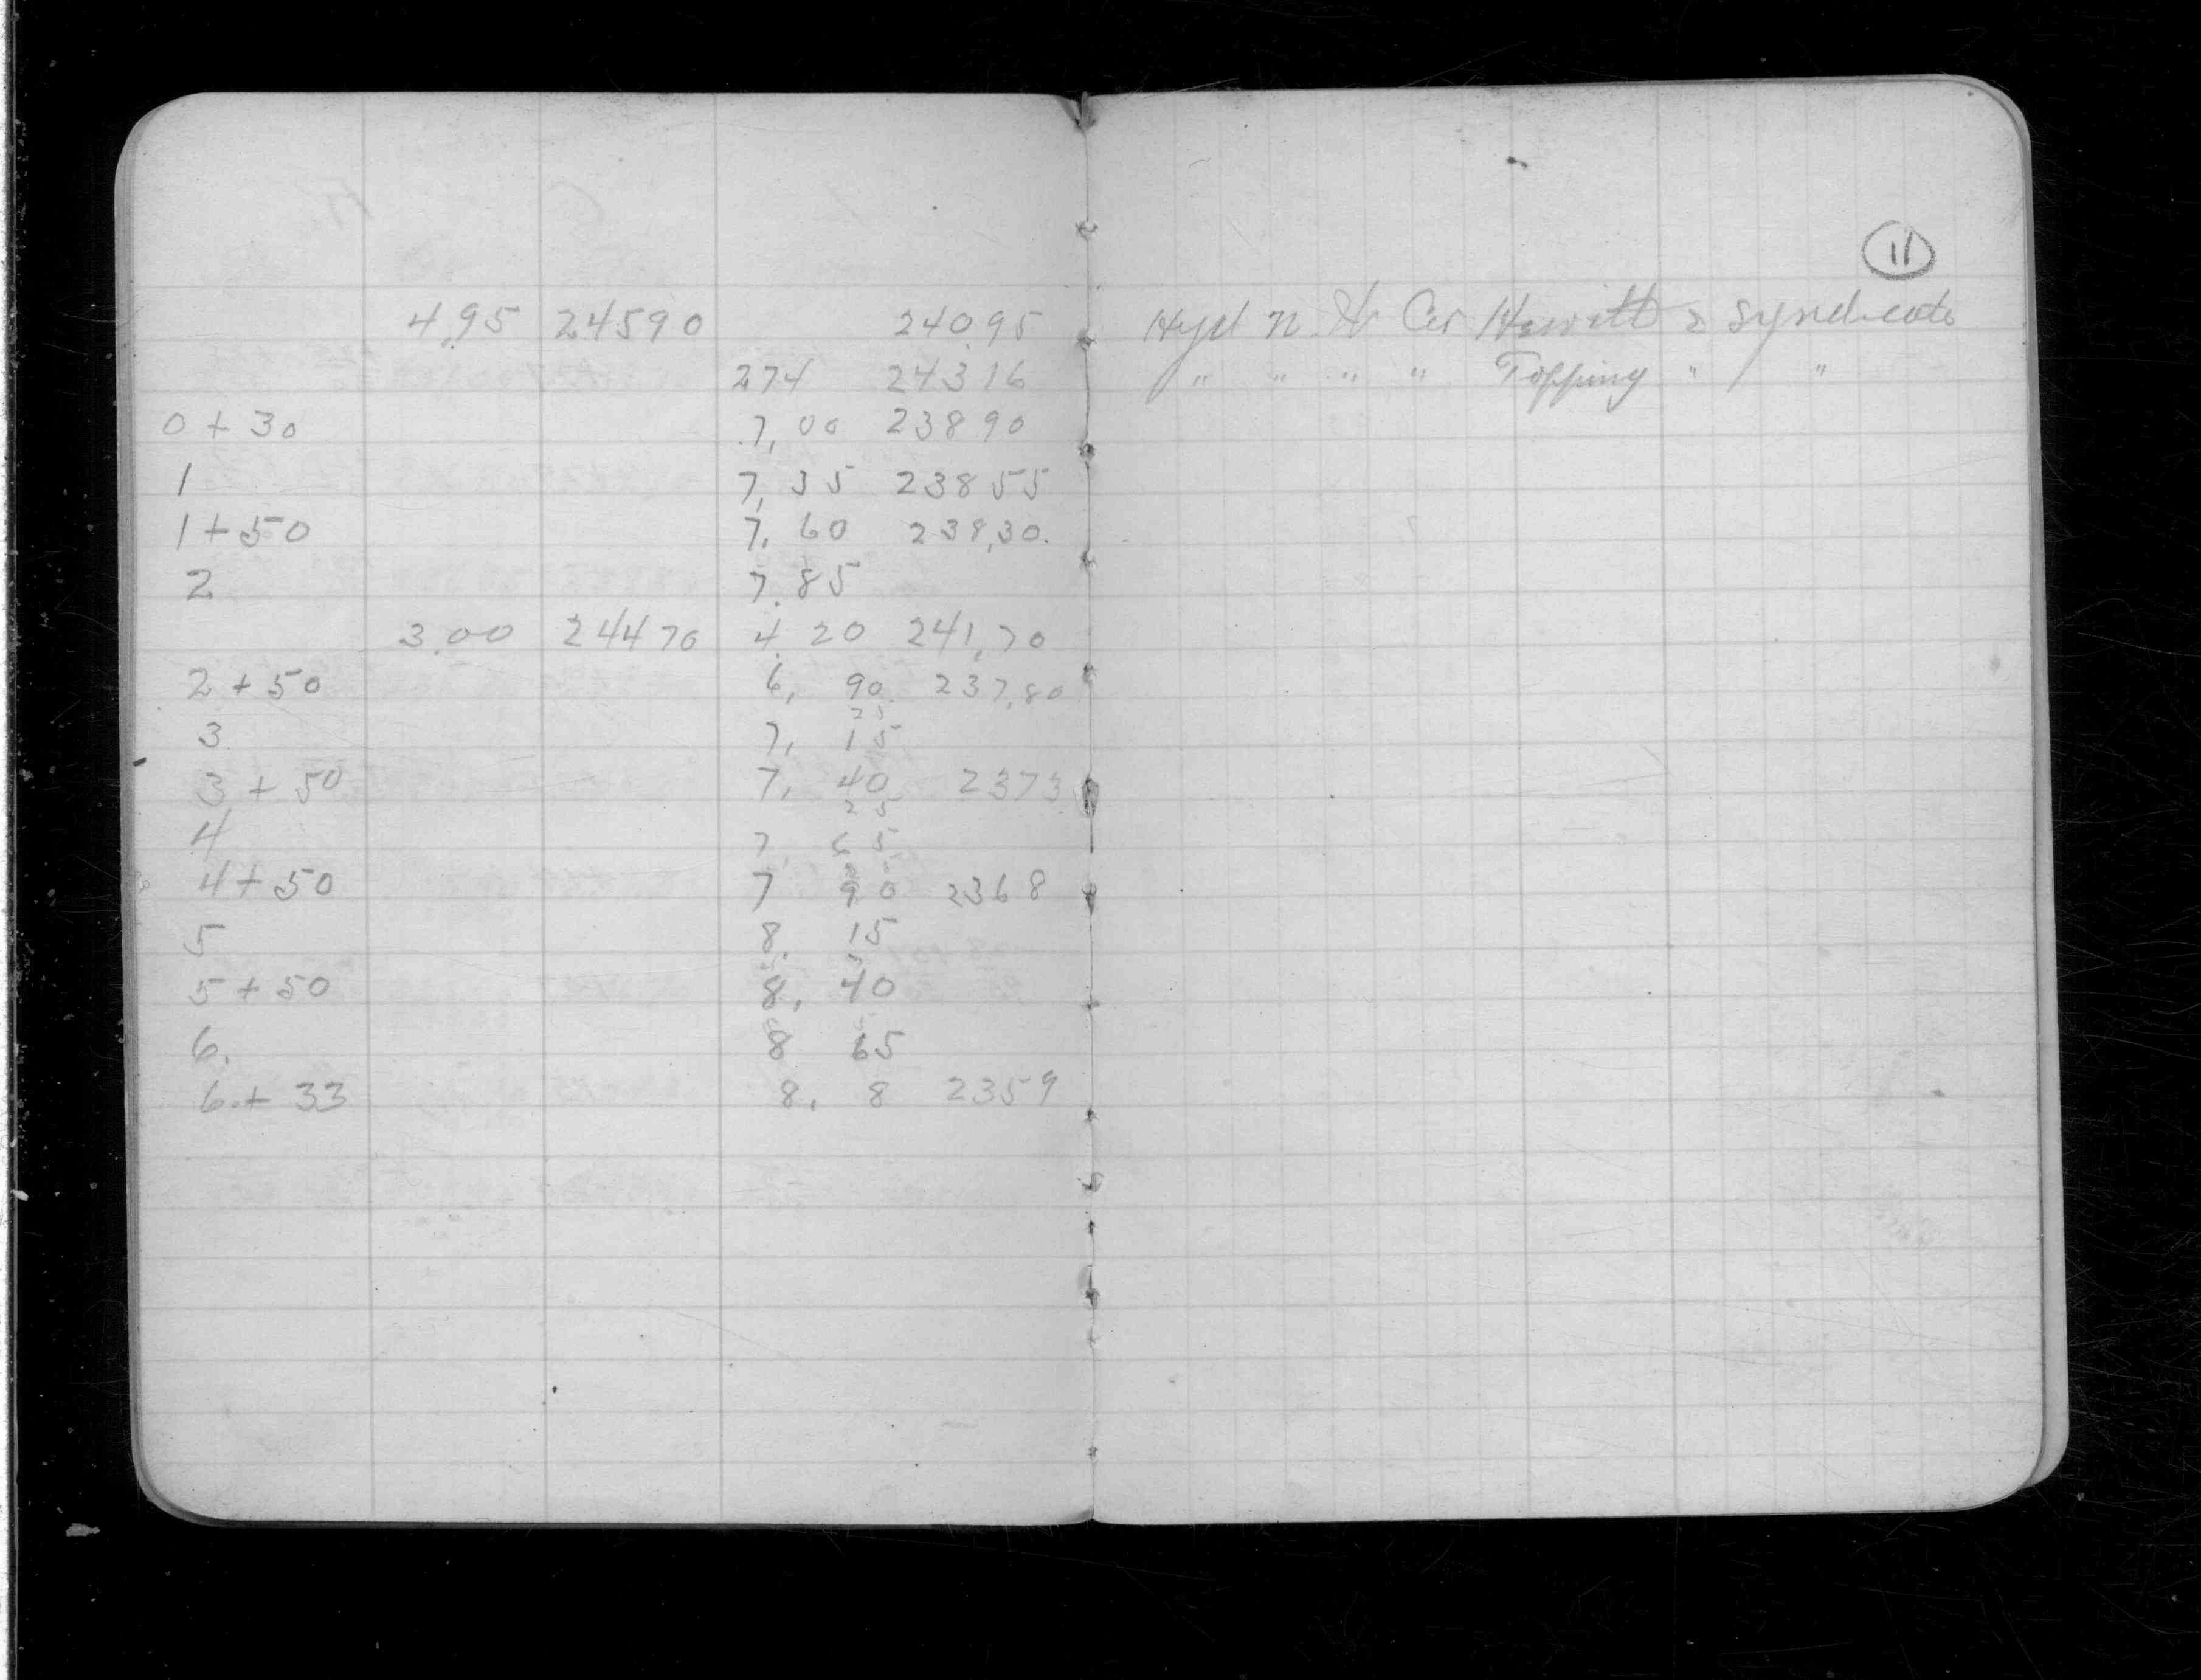 11
4.95 24590 24095 Hyd N. W Cor Hewitt & Syndicate
274 24316 " " " " Topping " "
0 + 30 7,00 23890
1 7,35 23855
1 + 50 7.60 238,30.
2 7.85
3.00 24470 4.20 241,70
2 + 50 6, 90 237,80
25
3 7, 15
3 + 50 7, 40 2373
25
4 7, 65
4 + 50 7 90 2368
5 8. 15
5 + 50 8, 40
6. 8 65
6 + 33 8. 8 2359